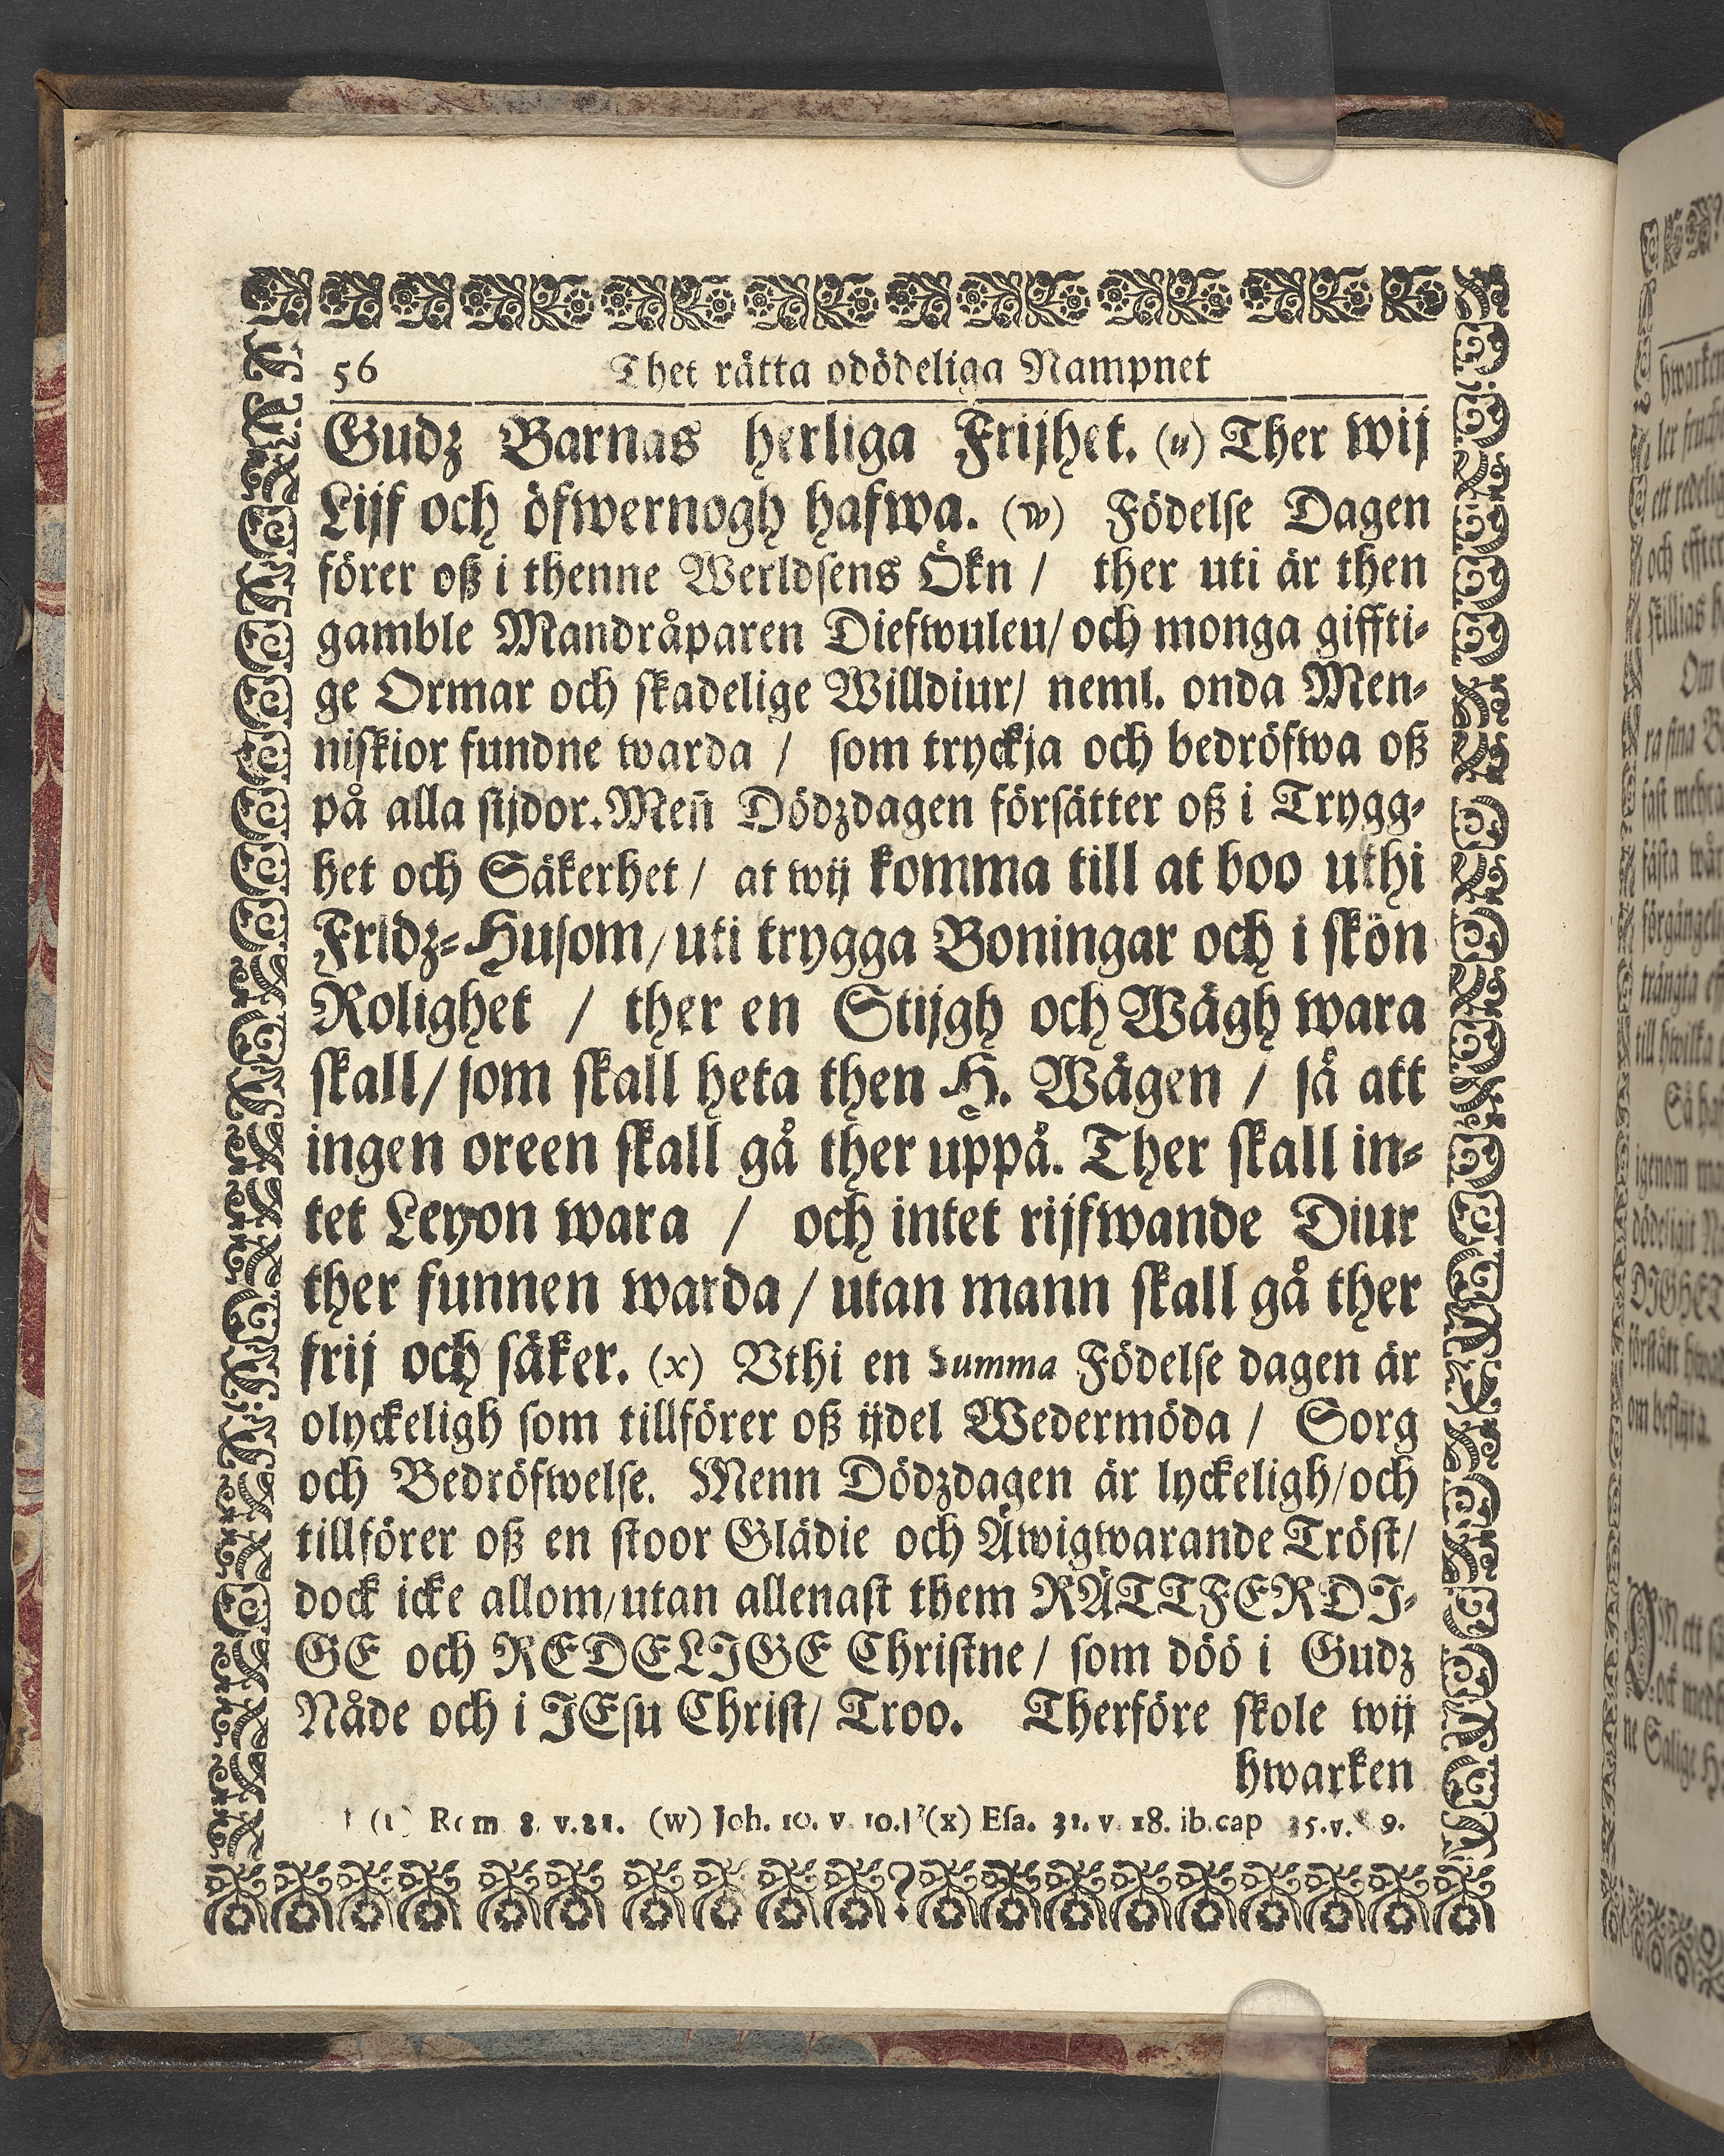 56 Thet rätta odödeliga Nampnet
Gudz Barnas herliga Frijhet. (u) Ther wij
Lijf och öfwernogh hafwa. (w) Födelse Dagen
förer oß i thenne Werldsens Ökn / ther uti är then
gamble Mandråparen Diefwuleu/ och monga giffti-
ge Ormar och skadelige Willdiur/ neml. onda Men-
niskior fundne warda / som tryckja och bedröfwa oß
på alla sijdor. Men̄ Dödzdagen försätter oß i Trygg-
het och Säkerhet / at wij komma till at boo uthi
Fridz-Husom/ uti trygga Boningar och i skön
Rolighet / ther en Stijgh och Wägh wara
skall/ som skall heta then H. Wägen / så att
ingen oreen skall gå ther uppå. Ther skall in-
tet Leyon wara / och intet rijfwande Diur
ther funnen warda / utan mann skall gå ther
frij och säker. (x) Vthi en Summa Födelse dagen är
olyckeligh som tillförer oß ijdel Wedermöda / Sorg
och Bedröfwelse. Menn Dödzdagen är lyckeligh/ och
tillförer oß en stoor Glädie och Äwigwarande Tröst/
dock icke allom/ utan allenast them RÄTTFERDI-
GE och REDELIGE Christne / som döö i Gudz
Nåde och i JEsu Christ/ Troo. Therföre skole wij
hwarken
Rom 8. v. 21. (w) Joh. 10. v. 10. (x) Esa. 32. v. 18. ib. cap 35. v. 9.